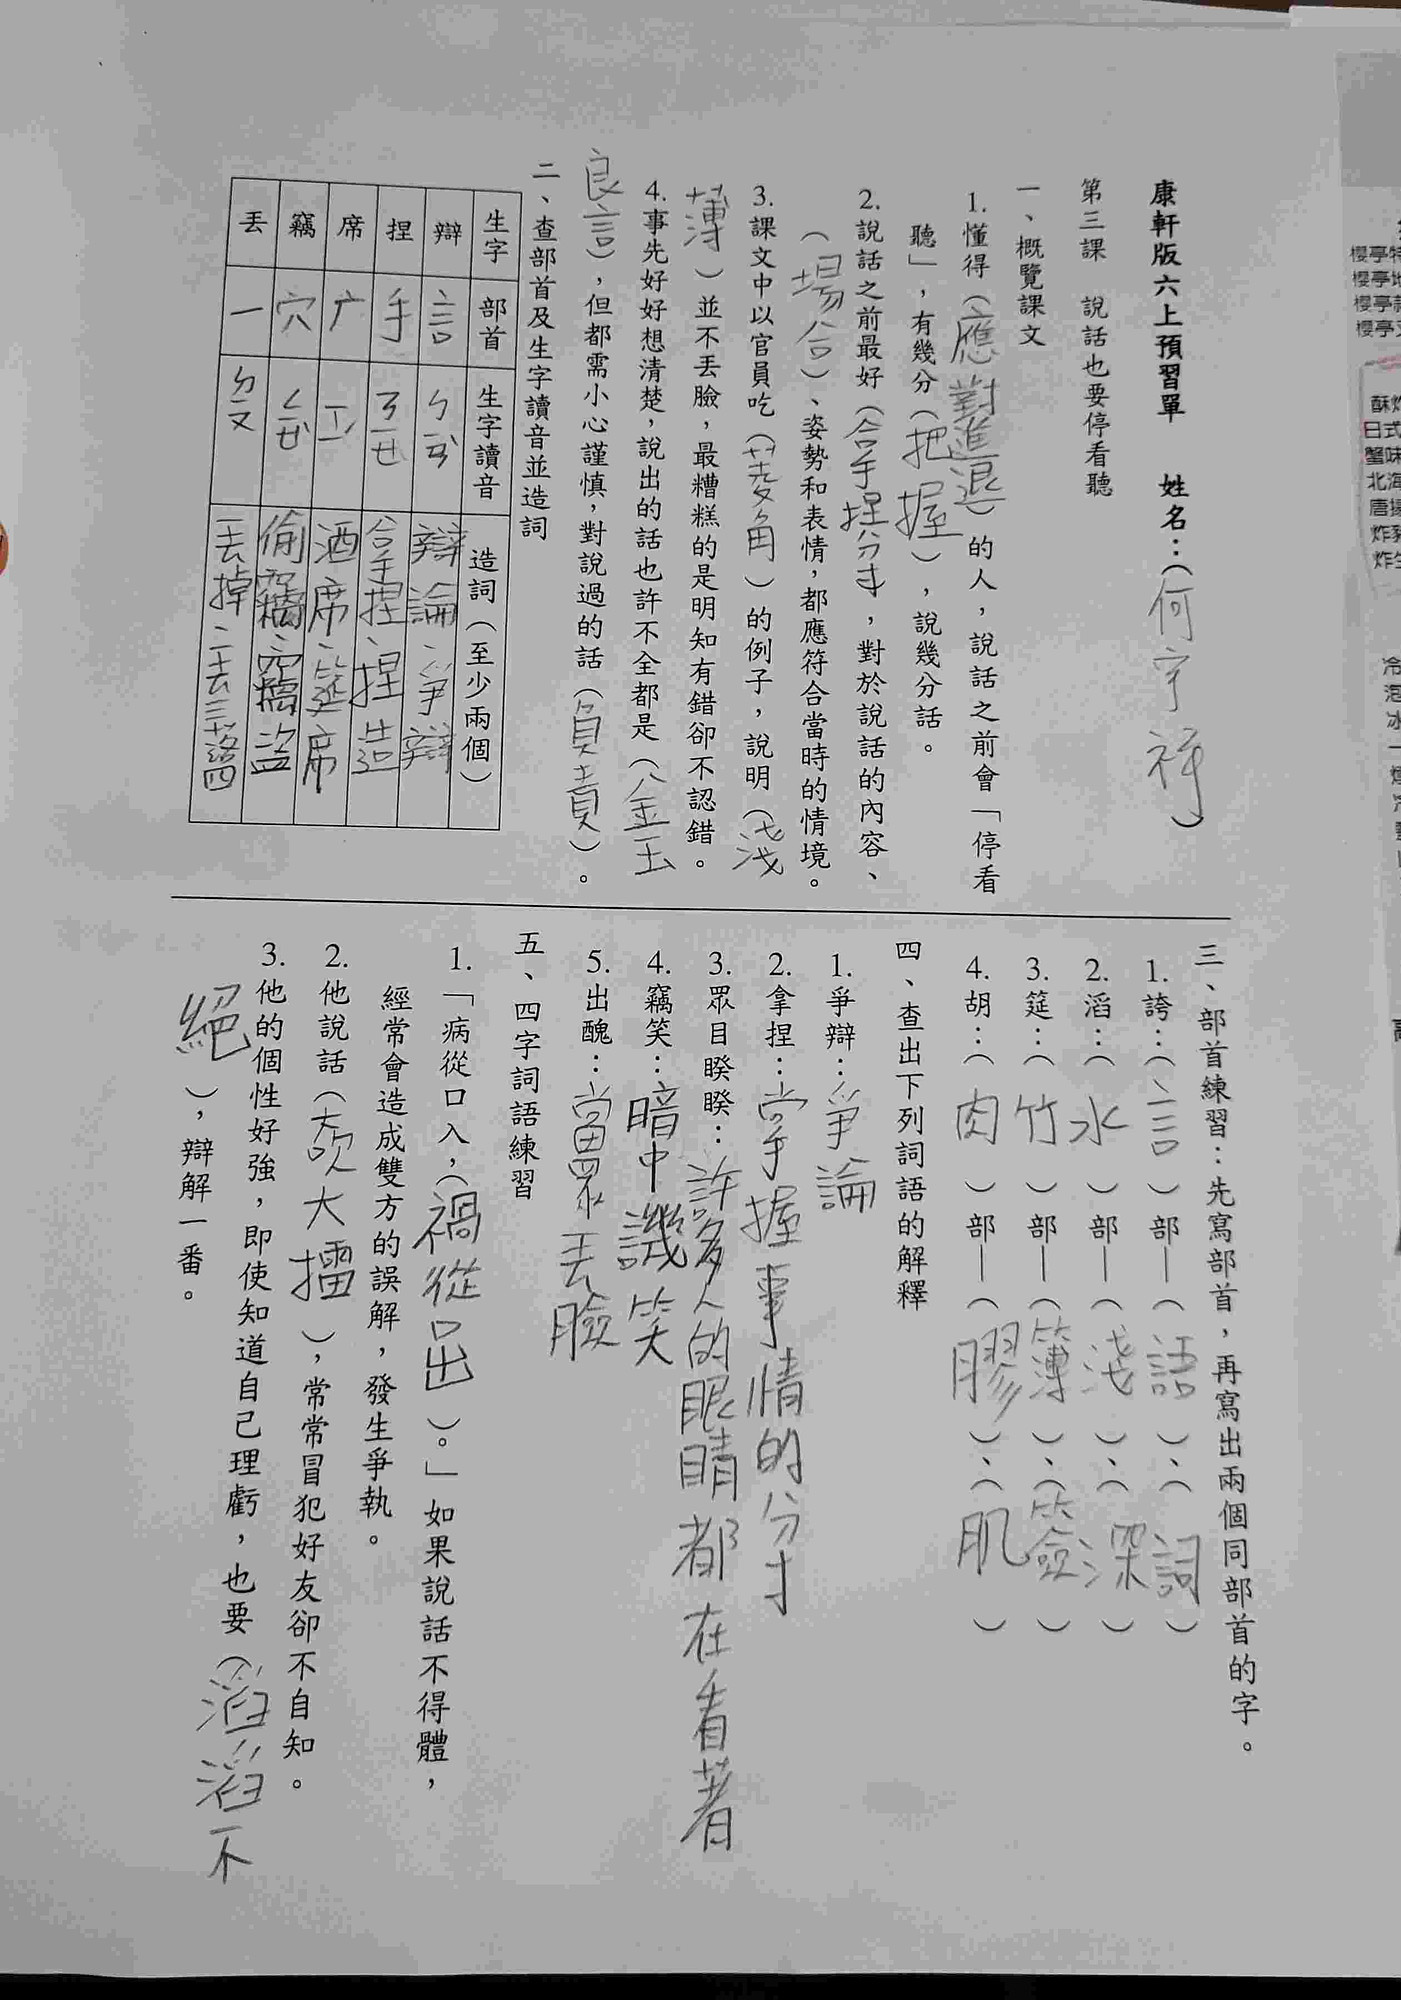 康軒版六上預習單　姓名：（何宇祥）
第三課　說話也要停看聽
一、概覽課文
1. 懂得（應對進退）的人，說話之前會「停看
聽」，有幾分（把握），說幾分話。
2. 說話之前最好（拿捏分寸，對於說話的內容、
（場合）、姿勢和表情，都應符合當時的情境。
3. 課文中以官員吃（菱角）的例子，說明（淺
薄）並不丟臉，最糟糕的是明知有錯卻不認錯。
4. 事先好好想清楚，說出的話也許不全都是（金玉
良言），但都需小心謹慎，對說過的話（負責）。
二、查部首及生字讀音並造詞
生字　部首　生字讀音　造詞（至少兩個）
辯　言　ㄅㄧㄢˋ　辯論、爭辯
捏　手　ㄋㄧㄝ　拿捏、捏造
席　广　ㄒㄧˊ　酒席、筵席
竊　穴　ㄑㄧㄝˋ　偷竊、竊盜
丟　一　ㄉㄧㄡ　丟掉、丟三落四
三、部首練習：先寫部首，再寫出兩個同部首的字。
1. 誇：（言）部—（語）、（詞）
2. 滔：（水）部—（淺）、（深）
3. 筵：（竹）部—（簿）、（簽）
4. 胡：（肉）部—（膠）、（肌）
四、查出下列詞語的解釋
1. 爭辯：爭論
2. 拿捏：掌握事情的分寸
3. 眾目睽睽：許多人的眼睛都在看著
4. 竊笑：暗中譏笑
5. 出醜：當眾丟臉
五、四字詞語練習
1. 「病從口入，（禍從口出）。」如果說話不得體，
經常會造成雙方的誤解，發生爭執。
2. 他說話（大吹大擂），常常冒犯好友卻不自知。
3. 他的個性好強，即使知道自己理虧，也要（滔滔不
絕），辯解一番。
櫻亭
櫻亭
櫻亭
櫻亭